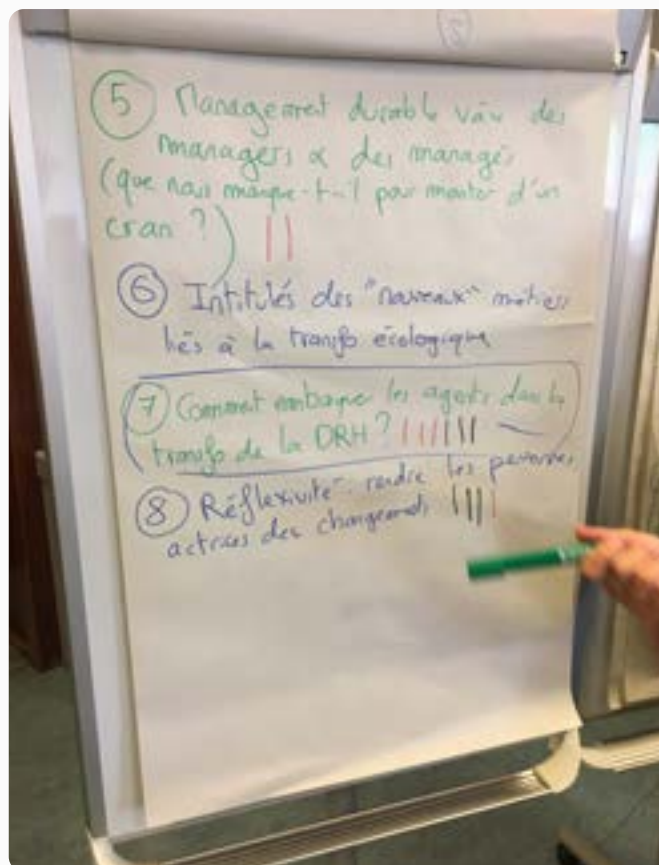 5 Management durable vàv des
managers & des managés
(que nous manque-t-il pour monter d'un
cran ?)
6 Intitulés des "nouveaux" métiers
liés à la transfo écologique
7 Comment embarquer les agents dans la
transfo de la DRH ?
8 Réflexivité - rendre les personnes
actrices des changements